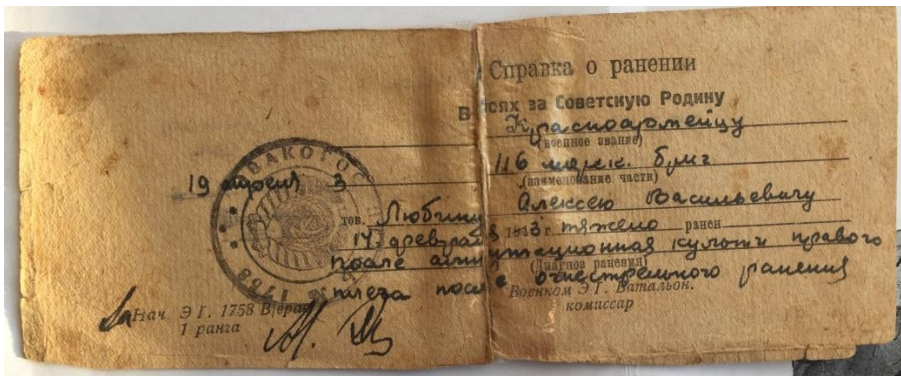 Справка о ранении
В боях за Советскую Родину
Красноармейцу
(военное звание)
116 морск. бриг
(наименование части)
19 апреля 3
тов. Любчину Алексею Васильевичу
14 февраля 1943 г. тяжело ранен
После ампутационная культи правого
(Диагноз ранения)
плеча после огнестрельного ранения
Военком Э Г. Батальон.
комиссар
За Нач. Э Г. 1758 В/врач
1 ранга
ЭВАКОГОС
1758